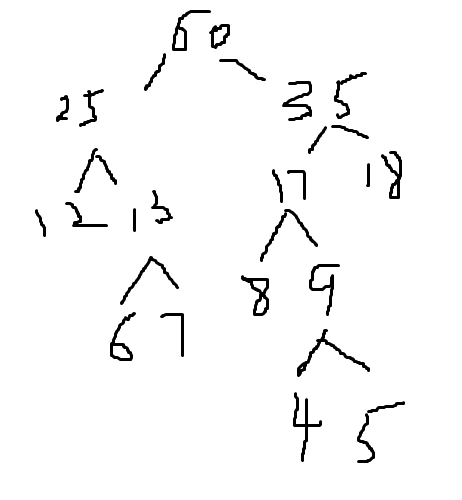 60
25 35
12 13 17 18
6 7 8 9
4 5